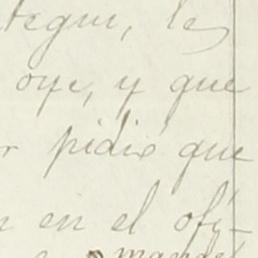 tegui, le
oye, y que
r pidió que
n en el ofi-
mandé